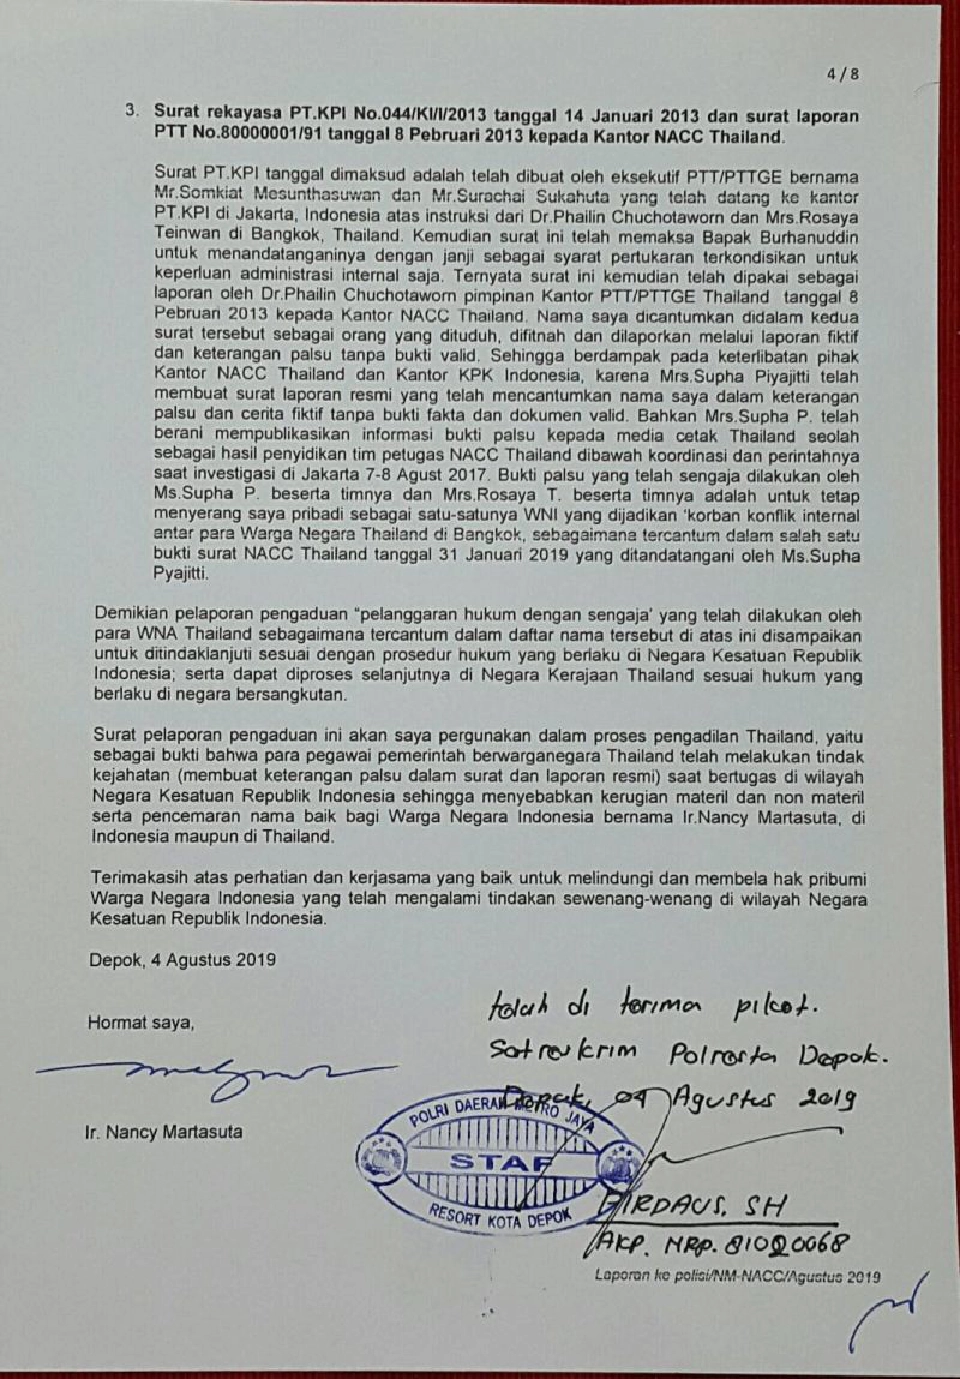 4 / 8
3. Surat rekayasa PT.KPI No.044/KI/I/2013 tanggal 14 Januari 2013 dan surat laporan
PTT No.80000001/91 tanggal 8 Pebruari 2013 kepada Kantor NACC Thailand.
Surat PT.KPI tanggal dimaksud adalah telah dibuat oleh eksekutif PTT/PTTGE bernama
Mr.Somkiat Mesunthasuwan dan Mr.Surachai Sukahuta yang telah datang ke kantor
PT.KPI di Jakarta, Indonesia atas instruksi dari Dr.Phailin Chuchotaworn dan Mrs.Rosaya
Teinwan di Bangkok, Thailand. Kemudian surat ini telah memaksa Bapak Burhanuddin
untuk menandatanganinya dengan janji sebagai syarat pertukaran terkondisikan untuk
keperluan administrasi internal saja. Ternyata surat ini kemudian telah dipakai sebagai
laporan oleh Dr.Phailin Chuchotaworn pimpinan Kantor PTT/PTTGE Thailand tanggal 8
Pebruari 2013 kepada Kantor NACC Thailand. Nama saya dicantumkan didalam kedua
surat tersebut sebagai orang yang dituduh, difitnah dan dilaporkan melalui laporan fiktif
dan keterangan palsu tanpa bukti valid. Sehingga berdampak pada keterlibatan pihak
Kantor NACC Thailand dan Kantor KPK Indonesia, karena Mrs.Supha Piyajitti telah
membuat surat laporan resmi yang telah mencantumkan nama saya dalam keterangan
palsu dan cerita fiktif tanpa bukti fakta dan dokumen valid. Bahkan Mrs.Supha P. telah
berani mempublikasikan informasi bukti palsu kepada media cetak Thailand seolah
sebagai hasil penyidikan tim petugas NACC Thailand dibawah koordinasi dan perintahnya
saat investigasi di Jakarta 7-8 Agust 2017. Bukti palsu yang telah sengaja dilakukan oleh
Ms.Supha P. beserta timnya dan Mrs.Rosaya T. beserta timnya adalah untuk tetap
menyerang saya pribadi sebagai satu-satunya WNI yang dijadikan 'korban konflik internal
antar para Warga Negara Thailand di Bangkok, sebagaimana tercantum dalam salah satu
bukti surat NACC Thailand tanggal 31 Januari 2019 yang ditandatangani oleh Ms.Supha
Pyajitti.
Demikian pelaporan pengaduan "pelanggaran hukum dengan sengaja' yang telah dilakukan oleh
para WNA Thailand sebagaimana tercantum dalam daftar nama tersebut di atas ini disampaikan
untuk ditindaklanjuti sesuai dengan prosedur hukum yang berlaku di Negara Kesatuan Republik
Indonesia; serta dapat diproses selanjutnya di Negara Kerajaan Thailand sesuai hukum yang
berlaku di negara bersangkutan.
Surat pelaporan pengaduan ini akan saya pergunakan dalam proses pengadilan Thailand, yaitu
sebagai bukti bahwa para pegawai pemerintah berwarganegara Thailand telah melakukan tindak
kejahatan (membuat keterangan palsu dalam surat dan laporan resmi) saat bertugas di wilayah
Negara Kesatuan Republik Indonesia sehingga menyebabkan kerugian materil dan non materil
serta pencemaran nama baik bagi Warga Negara Indonesia bernama Ir.Nancy Martasuta, di
Indonesia maupun di Thailand.
Terimakasih atas perhatian dan kerjasama yang baik untuk melindungi dan membela hak pribumi
Warga Negara Indonesia yang telah mengalami tindakan sewenang-wenang di wilayah Negara
Kesatuan Republik Indonesia.
Depok, 4 Agustus 2019
Hormat saya,
Ir. Nancy Martasuta
telah di terima piket.
Satreskrim Polresta Depok.
Depok, 04 Agustus 2019
POLRI DAERAH METRO JAYA
STAF
RESORT KOTA DEPOK
FIRDAUS, SH
AKP. NRP. 81020068
Laporan ke polisi/NM-NACC/Agustus 2019